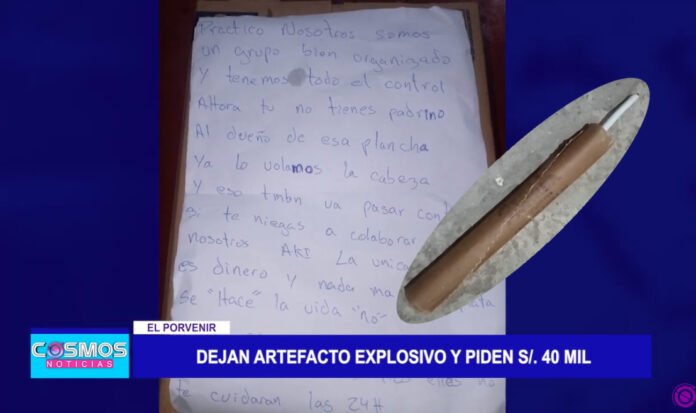 Practico Nosotros somos
un grupo bien organizado
Y tenemos todo el control
Ahora tu no tienes padrino
Al dueño de esa plancha
Ya lo volamos la cabeza
Y eso tmbn va pasar cont
si te niegas a colaborar
nosotros AKI La unica
es dinero y nada ma plata
se "Hace" la vida "no"
EL PORVENIR
COSMOS
NOTICIAS
DEJAN ARTEFACTO EXPLOSIVO Y PIDEN S/. 40 MIL
no
te cuidaran las 24H